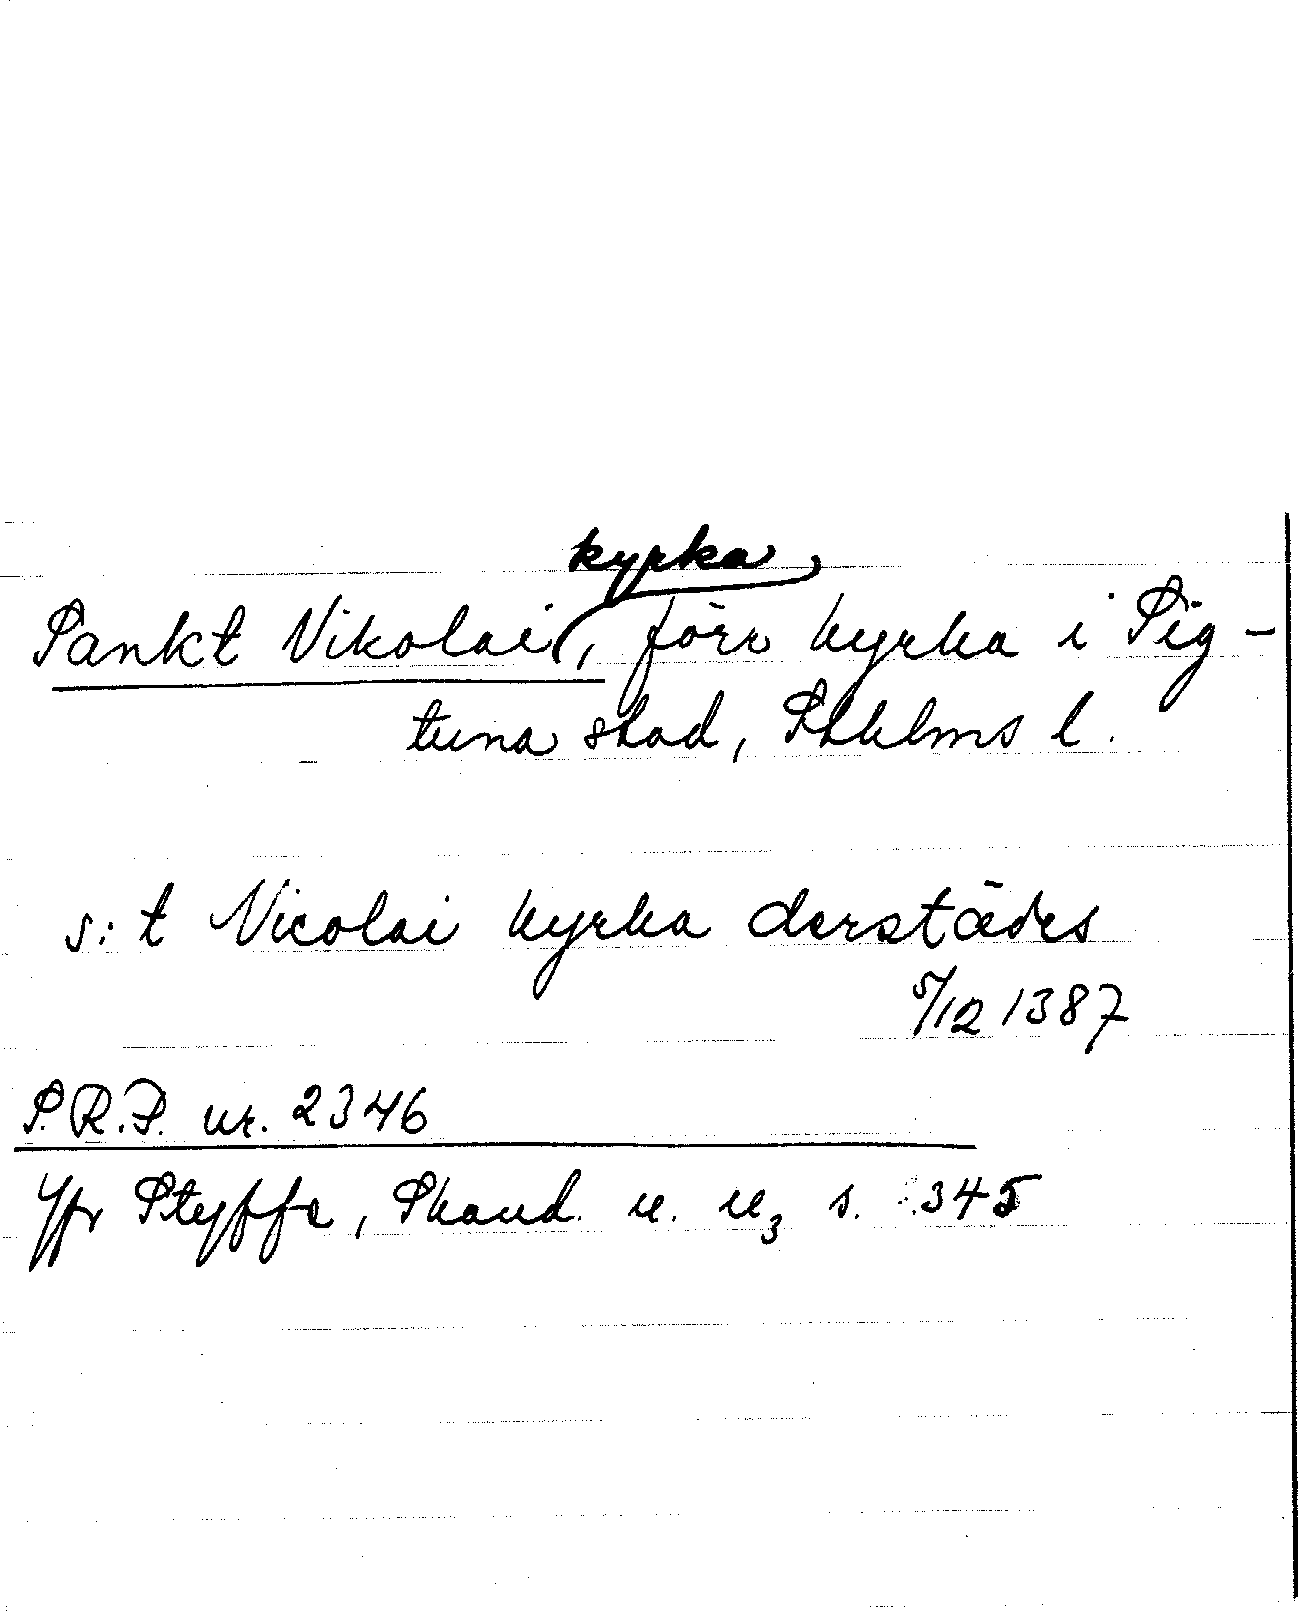 kyrka,
Sankt Nikolai, förr kyrka i Sig-
tuna stad, Sthlms l.
s:t Nicolai kyrka derstädes
5/12 1387
S.R.P. nr. 2346
Jfr Styffe, Skand. u. u3 s. 345